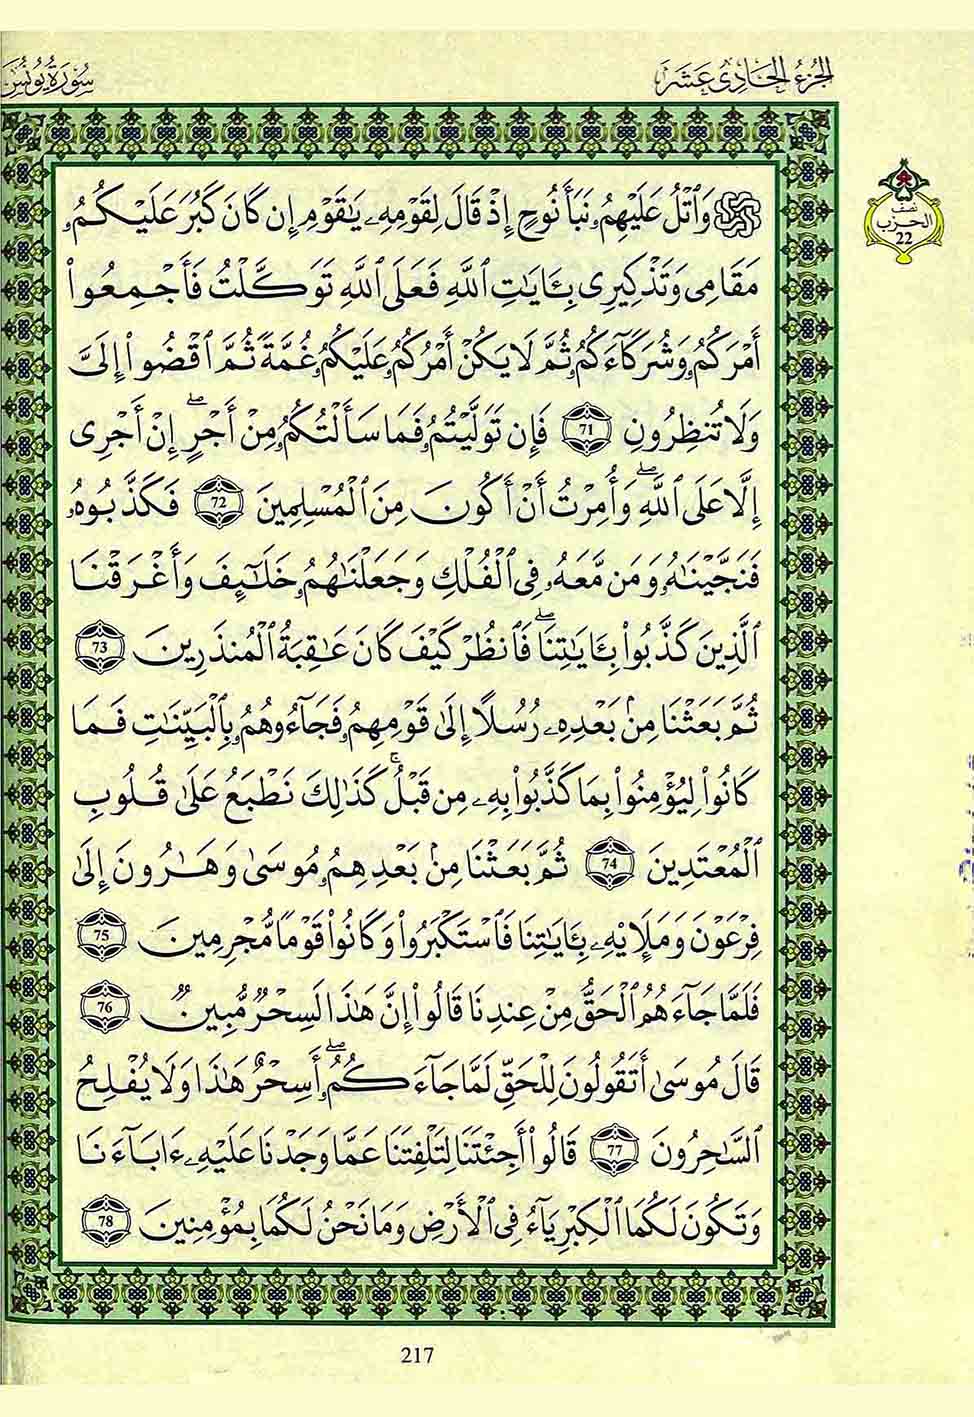 الجزء الحادي عشر
سورة يونس
نصف
الحزب
22
وَٱتْلُ عَلَيْهِمُۥ نَبَأَ نُوحٍ إِذْ قَالَ لِقَوْمِهِۦ يَٰقَوْمِ إِن كَانَ كَبُرَ عَلَيْكُمُۥ
مَقَامِى وَتَذْكِيرِى بِـَٔايَٰتِ ٱللَّهِ فَعَلَى ٱللَّهِ تَوَكَّلْتُ فَأَجْمِعُوا۟
أَمْرَكُمُۥ وَشُرَكَآءَكُمُۥ ثُمَّ لَا يَكُنْ أَمْرُكُمُۥ عَلَيْكُمُۥ غُمَّةً ثُمَّ ٱقْضُوا۟ إِلَىَّ
وَلَا تُنظِرُونِ 71 فَإِن تَوَلَّيْتُمُۥ فَمَا سَأَلْتُكُمُۥ مِنْ أَجْرٍ ۖ إِنْ أَجْرِى
إِلَّا عَلَى ٱللَّهِ ۖ وَأُمِرْتُ أَنْ أَكُونَ مِنَ ٱلْمُسْلِمِينَ 72 فَكَذَّبُوهُۥ
فَنَجَّيْنَٰهُۥ وَمَن مَّعَهُۥ فِى ٱلْفُلْكِ وَجَعَلْنَٰهُمُۥ خَلَٰٓئِفَ وَأَغْرَقْنَا
ٱلَّذِينَ كَذَّبُوا۟ بِـَٔايَٰتِنَا ۖ فَٱنظُرْ كَيْفَ كَانَ عَٰقِبَةُ ٱلْمُنذَرِينَ 73
ثُمَّ بَعَثْنَا مِنۢ بَعْدِهِۦ رُسُلًا إِلَىٰ قَوْمِهِمُۥ فَجَآءُوهُمُۥ بِٱلْبَيِّنَٰتِ فَمَا
كَانُوا۟ لِيُؤْمِنُوا۟ بِمَا كَذَّبُوا۟ بِهِۦ مِن قَبْلُ ۚ كَذَٰلِكَ نَطْبَعُ عَلَىٰ قُلُوبِ
ٱلْمُعْتَدِينَ 74 ثُمَّ بَعَثْنَا مِنۢ بَعْدِهِمُۥ مُوسَىٰ وَهَٰرُونَ إِلَىٰ
فِرْعَوْنَ وَمَلَإِي۟هِۦ بِـَٔايَٰتِنَا فَٱسْتَكْبَرُوا۟ وَكَانُوا۟ قَوْمًا مُّجْرِمِينَ 75
فَلَمَّا جَآءَهُمُ ٱلْحَقُّ مِنْ عِندِنَا قَالُوٓا۟ إِنَّ هَٰذَا لَسِحْرٌ مُّبِينٌ 76
قَالَ مُوسَىٰ أَتَقُولُونَ لِلْحَقِّ لَمَّا جَآءَكُمُۥ ۖ أَسِحْرٌ هَٰذَا وَلَا يُفْلِحُ
ٱلسَّٰحِرُونَ 77 قَالُوا۟ أَجِئْتَنَا لِتَلْفِتَنَا عَمَّا وَجَدْنَا عَلَيْهِۦ ءَابَآءَنَا
وَتَكُونَ لَكُمَا ٱلْكِبْرِيَآءُ فِى ٱلْأَرْضِ وَمَا نَحْنُ لَكُمَا بِمُؤْمِنِينَ 78
217